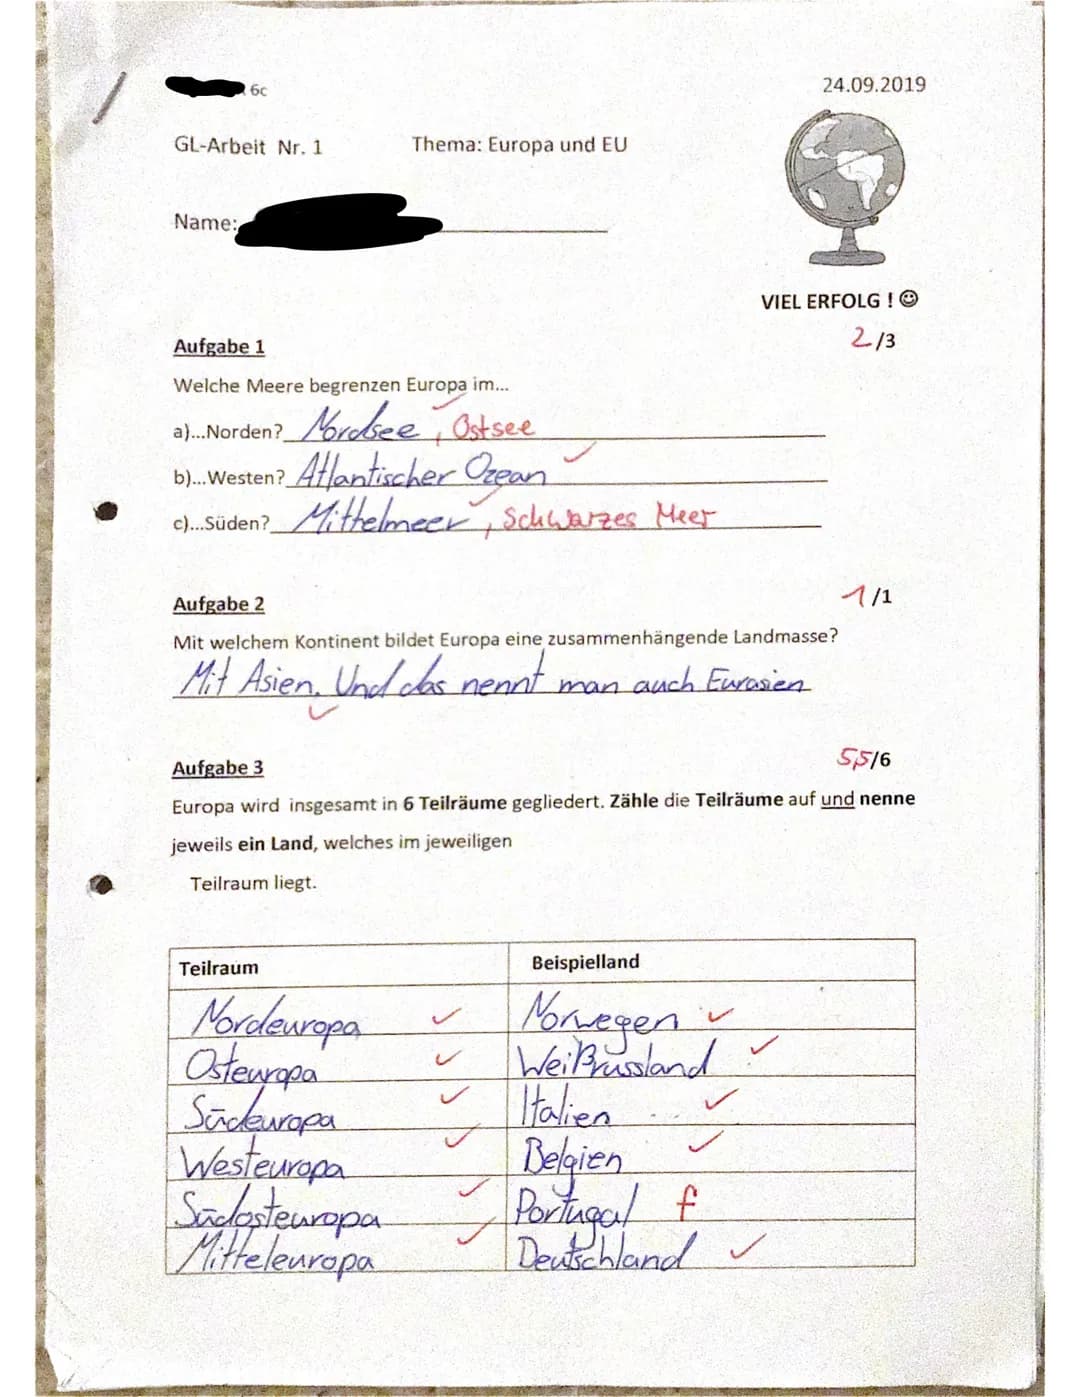 6c
24.09.2019
GL-Arbeit Nr. 1 Thema: Europa und EU
Name:
VIEL ERFOLG ! ☺
2/3
Aufgabe 1
Welche Meere begrenzen Europa im...
a)...Norden? Nordsee, Ostsee
b)...Westen? Atlantischer Ozean
c)...Süden? Mittelmeer, Schwarzes Meer
1/1
Aufgabe 2
Mit welchem Kontinent bildet Europa eine zusammenhängende Landmasse?
Mit Asien. Und das nennt man auch Eurasien
5,5/6
Aufgabe 3
Europa wird insgesamt in 6 Teilräume gegliedert. Zähle die Teilräume auf und nenne
jeweils ein Land, welches im jeweiligen
Teilraum liegt.
Teilraum Beispielland
Nordeuropa Norwegen
Osteuropa Weißrussland
Südeuropa Italien
Westeuropa Belgien
Südosteuropa Portugal f
Mitteleuropa Deutschland